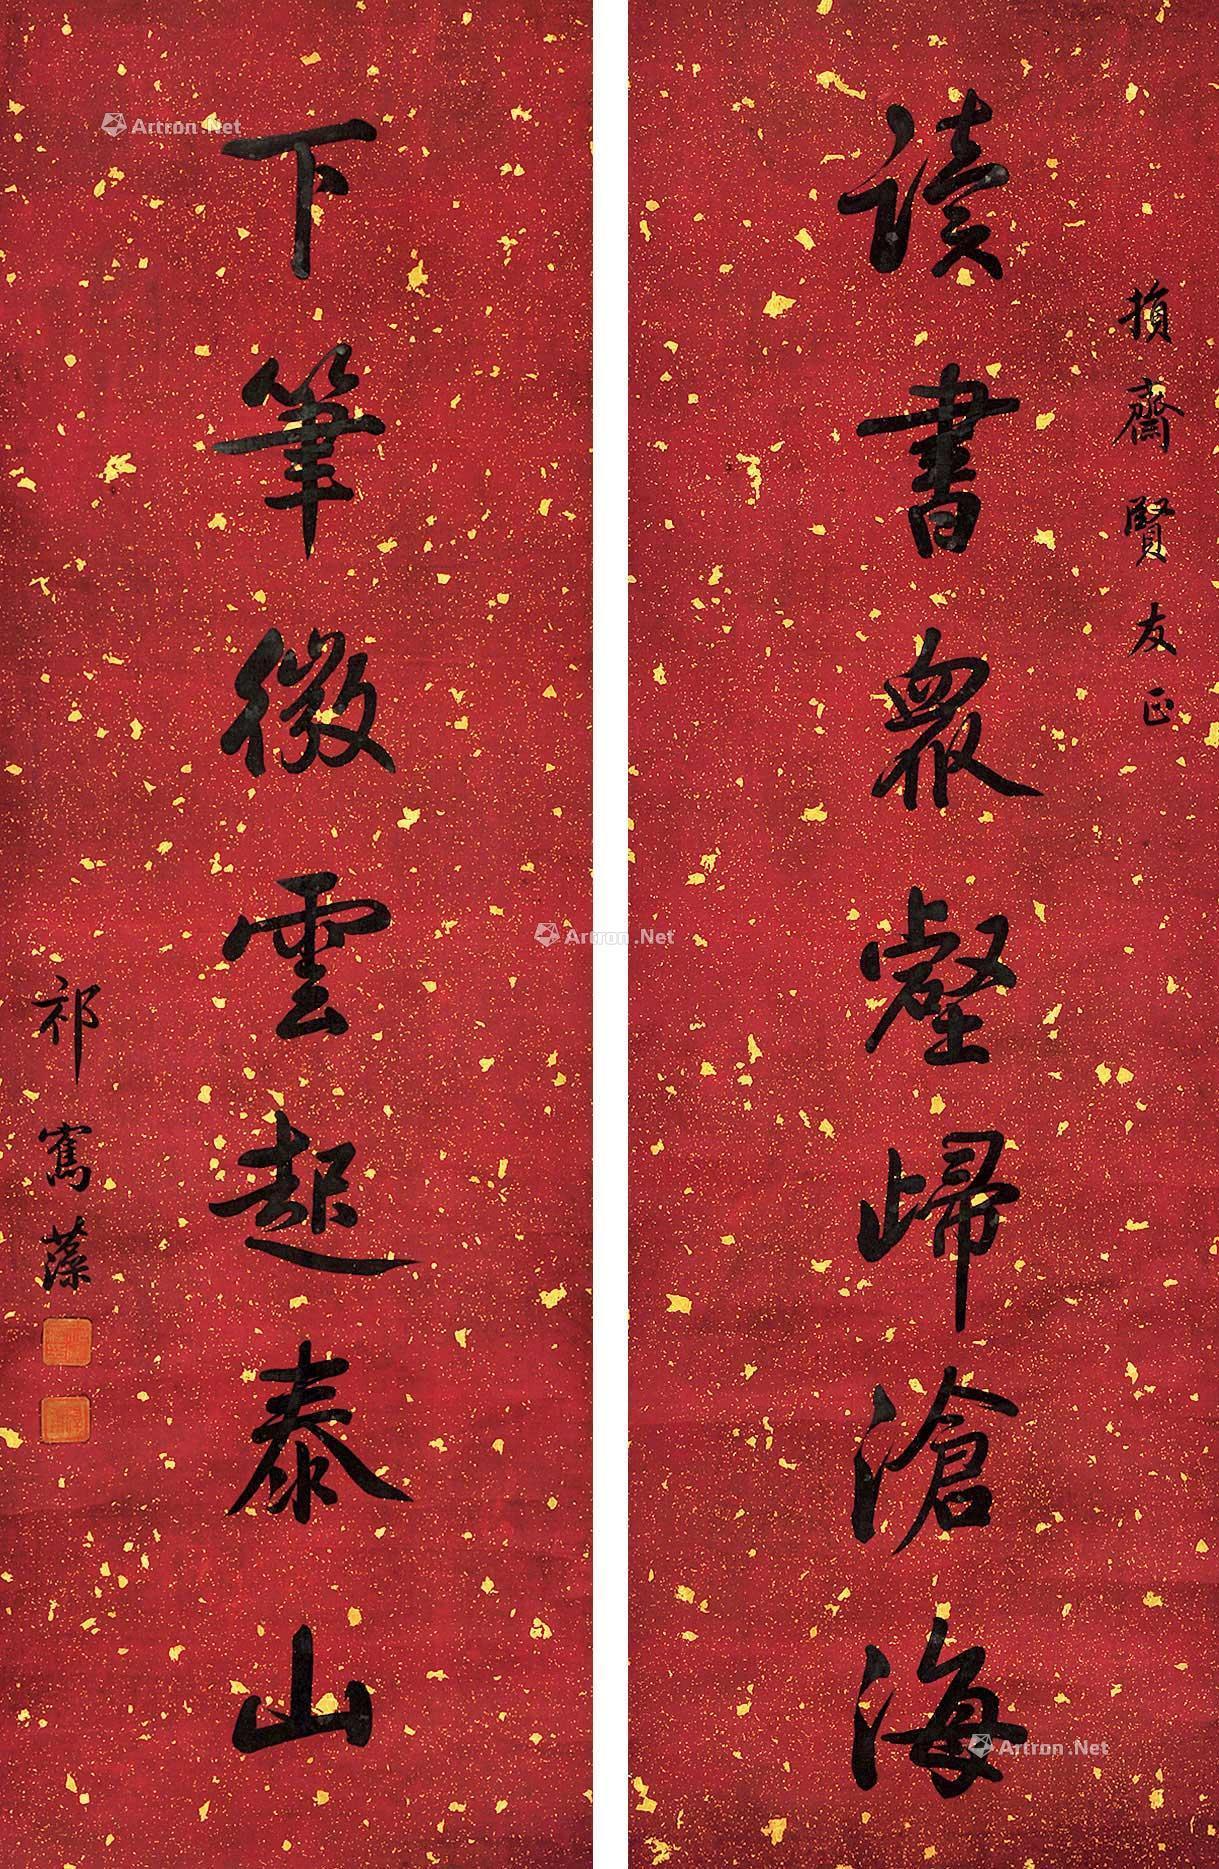 損齋賢友正
讀書衆壑歸滄海
下筆微雲起泰山
祁寯藻
Artron.Net
Artron.Net
Artron.Net